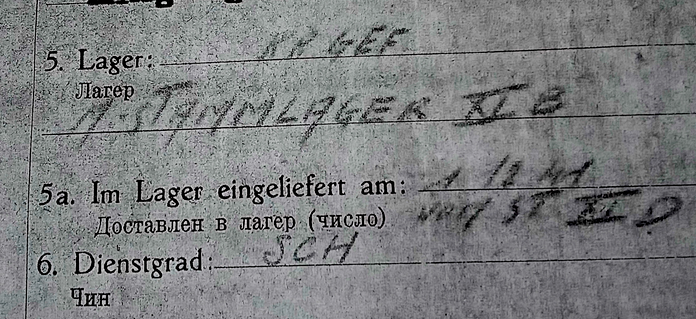 5. Lager: KR GEF
Лагер
M-STAMMLAGER XI B
5a. Im Lager eingeliefert am: 1 12 41
Доставлен в лагер (число) ST XI D
6. Dienstgrad: SCH
Чин